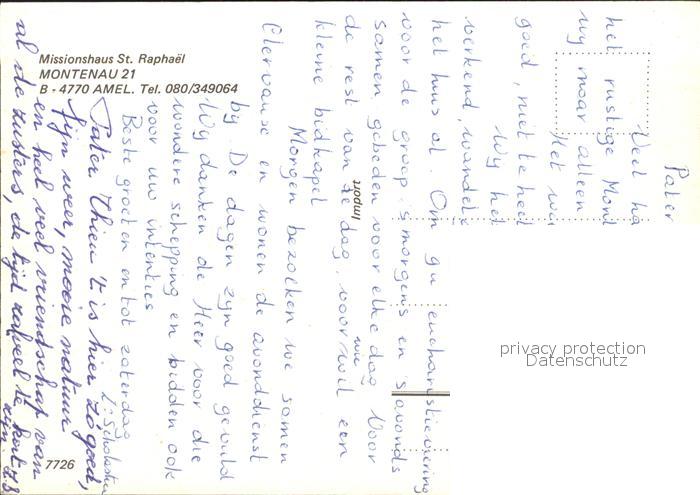 Missionshaus St. Raphaël
MONTENAU 21
B - 4770 AMEL. Tel. 080/349064
Pater
Veel ha
het rustige Mont
wy maar alleen
Het wa
goed, niet te heet
Wy he
verkend, wandel
het huis al. Om 9u eucharistieviering
voor de groep 's morgens en 's avonds
samen gebeden voor elke dag Voor
de rest van de dag, voor wie wil een
kleine bidkapel
Morgen bezoeken we samen
Clervaux en wonen de avonddienst
by. De dagen zyn goed gevuld
Wy danken de Heer voor die
wondere schepping en bidden ook
voor uw intenties
Beste groeten en tot zaterdag
Z. Scholastica
Pater Thieu 't is hier zo goed,
fijn weer, mooie natuur
en heel veel vriendschap van
al de zusters, de tijd zal veel te kort
zijn.
Import
7726
privacy protection
Datenschutz